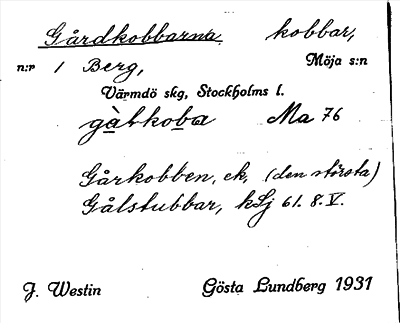 Gårdkobbarna kobbar,
n:r 1 Berg, Möja s:n
Värmdö skg, Stockholms l.
gàlkoba Ma 76
Gårkobben, ek, (den största)
Gålstubbar, hLj 61. 8. V.
J. Westin Gösta Lundberg 1931